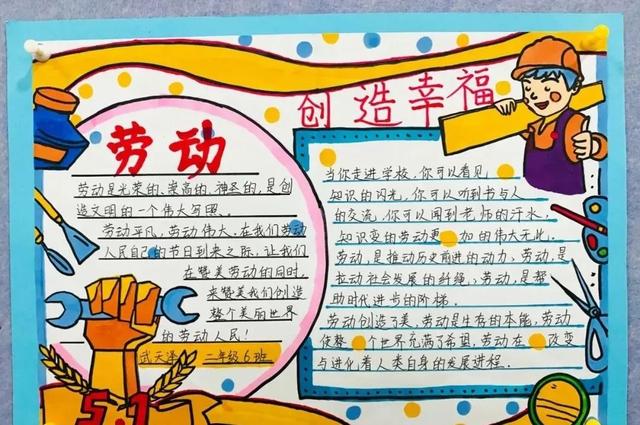 劳动 创造幸福
劳动是光荣的、崇高的、神圣的,是创
造文明的一个伟大写照.
劳动平凡,劳动伟大.在我们劳动
人民自己的节日到来之际,让我们
在赞美劳动的同时.
来赞美我们创造
整个美丽世界
的劳动人民!
武天泽 二年级6班
5.1
当你走进学校,你可以看见
知识的闪光,你可以听到书与人
的交流,你可以闻到老师的汗水,
知识变的劳动更 加的伟大无比.
劳动,是推动历史前进的动力,劳动,是
拉动社会发展的纤绳,劳动,是帮
助时代进步的阶梯.
劳动创造了美,劳动是生存的本能,劳动
使整 个世界充满了希望,劳动在 改变
与进化着人类自身的发展进程.